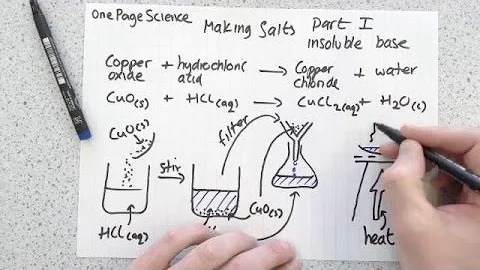 One Page Science
Making Salts Part I
insoluble base
Copper oxide + hydrochloric acid → Copper chloride + water
CuO(s) + HCl(aq) → CuCl2(aq) + H2O(l)
CuO(s)
stir
filter
CuO(s)
HCl(aq)
heat